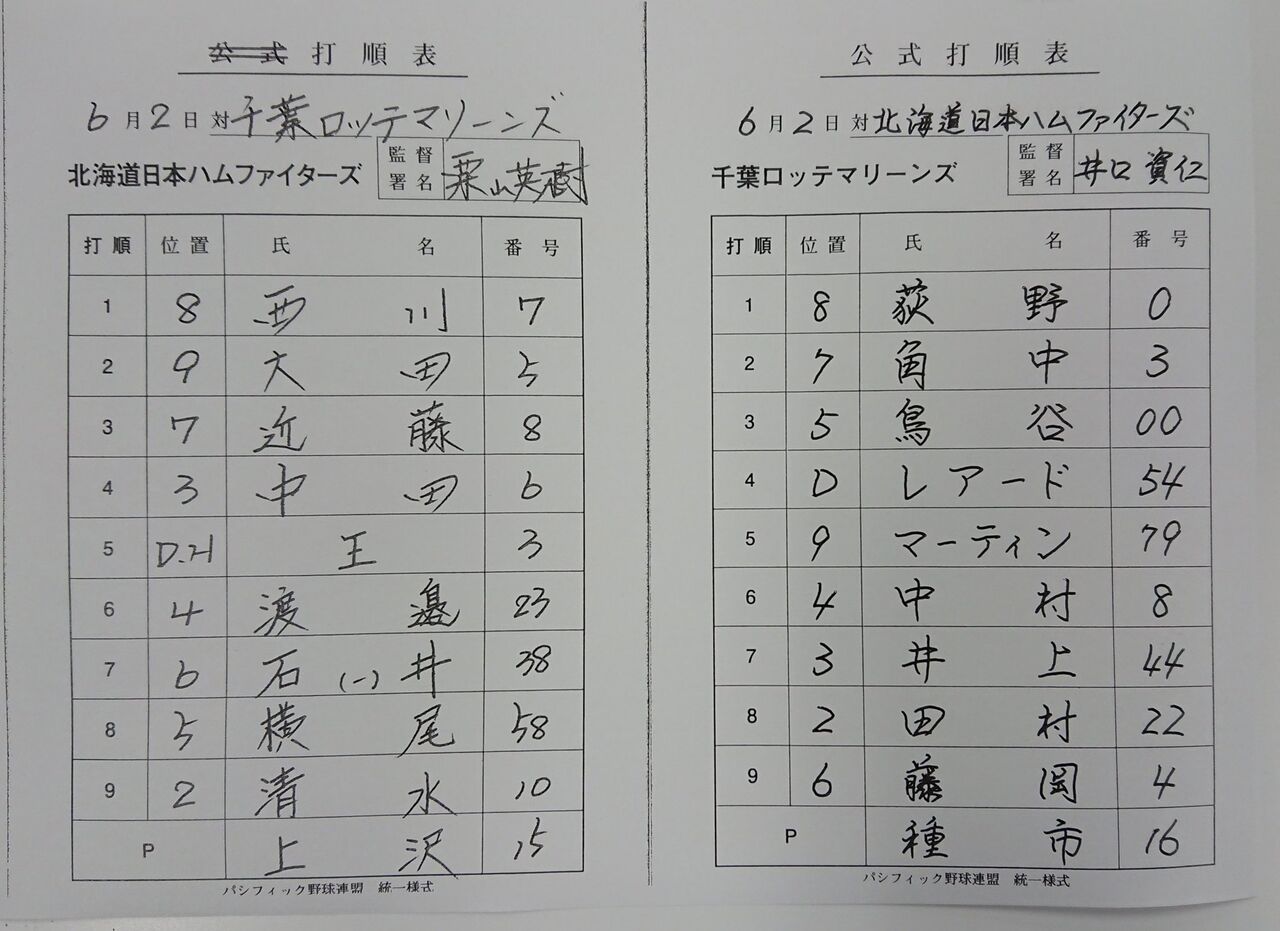 公式 打順表
6月2日 対 千葉ロッテマリーンズ
北海道日本ハムファイターズ 監督署名 栗山英樹
打順 位置 氏名 番号
1 8 西川 7
2 9 大田 5
3 7 近藤 8
4 3 中田 6
5 D.H 王 3
6 4 渡邉 23
7 6 石(一)井 38
8 5 横尾 58
9 2 清水 10
P 上沢 15
パシフィック野球連盟 統一様式
公式打順表
6月2日 対 北海道日本ハムファイターズ
千葉ロッテマリーンズ 監督署名 井口資仁
打順 位置 氏名 番号
1 8 荻野 0
2 7 角中 3
3 5 鳥谷 00
4 D レアード 54
5 9 マーティン 79
6 4 中村 8
7 3 井上 44
8 2 田村 22
9 6 藤岡 4
P 種市 16
パシフィック野球連盟 統一様式